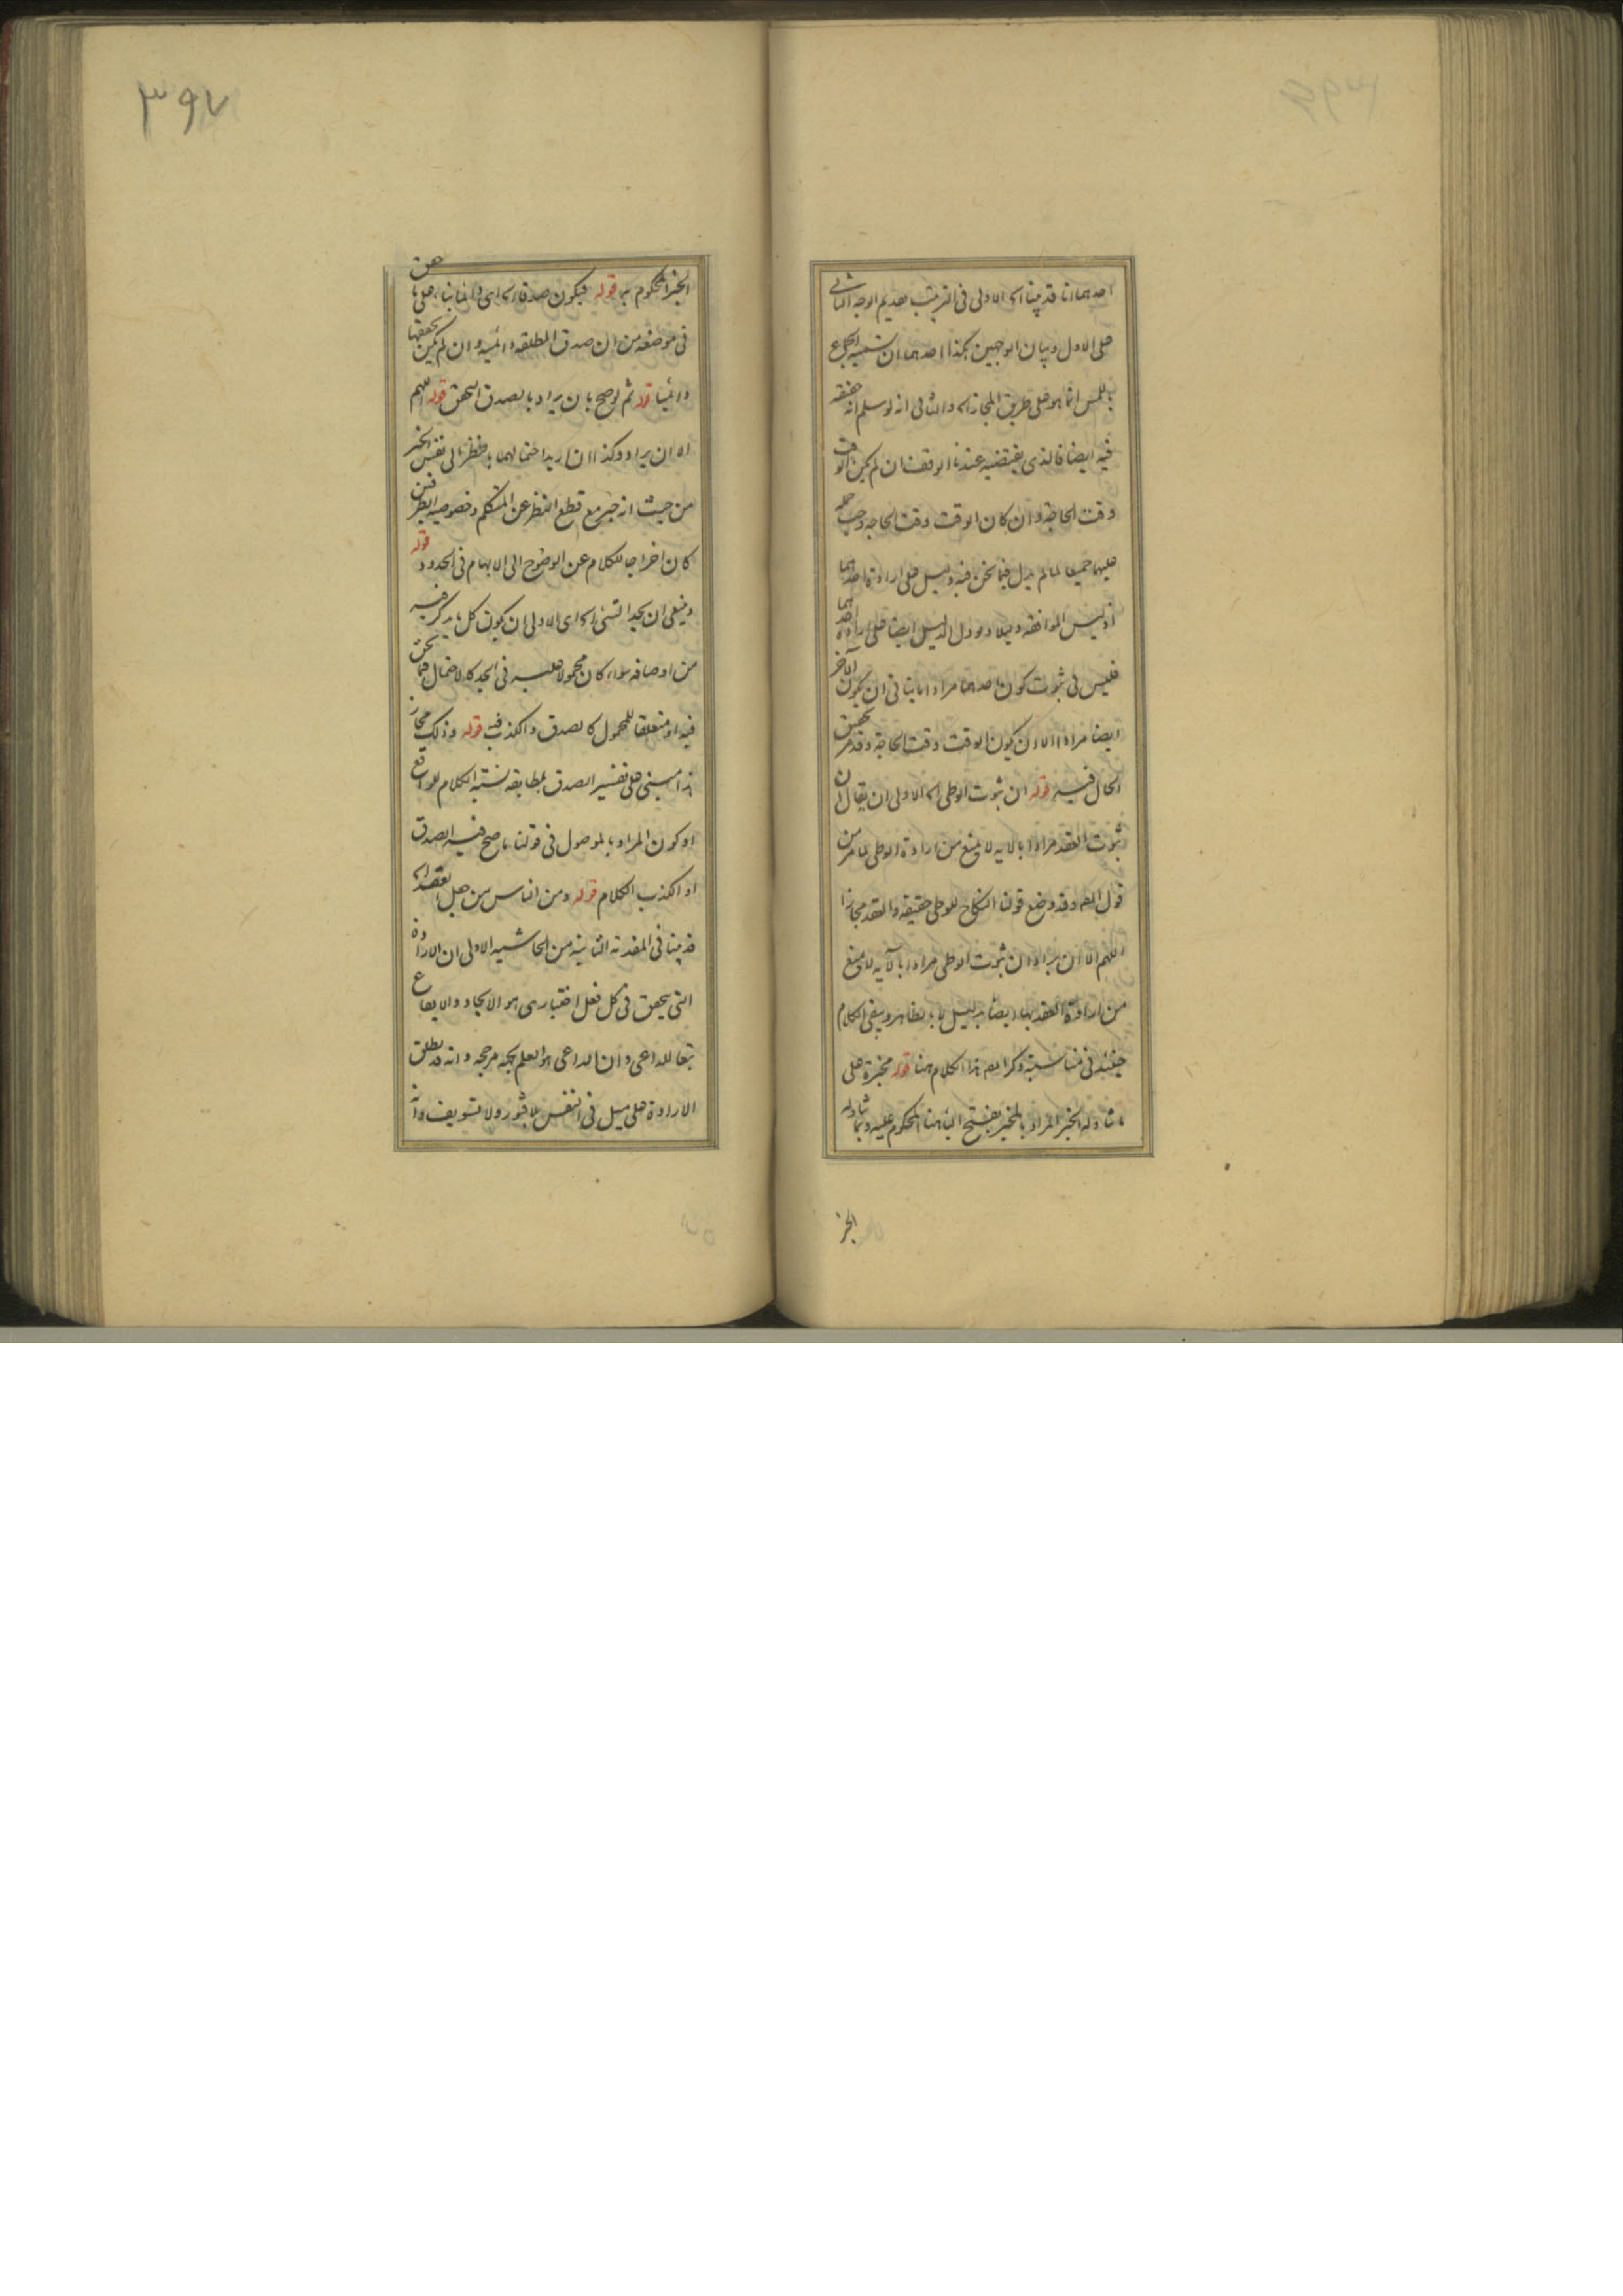 احدهما انا قد بينا الخ الاولى فى الترتيب تقديم الوجه الثانى
على الاول وبيان الوجهين هكذا احدهما ان تسمية الجماع
باللمس انما هو على طريق المجاز الخ والثانى انه لو سلم انه حقيقة
فيه ايضا فالذى يقتضيه عندنا الوقف ان لم يكن الوقت
وقت الحاجة وان كان الوقت وقت الحاجة وجب حمله
عليهما جميعا لما لم يدل فيما نحن فيه دليل على ارادة احدهما
اذ ليس الموافقة دليلا ولو دل الدليل ايضا على ارادة احدهما
فليس فى ثبوت كون احدهما مرادا ما ينافى ان يكون الآخر
ايضا مرادا الا ان يكون الوقت وقت الحاجة وقد مر تحقيق
الحال فيه قوله ان ثبوت الوطى الخ الاولى ان يقال ان
ثبوت العقد مرادا بالآية لا يمنع من ارادة الوطى لما مر من
قول المص وقد وضع قولنا النكاح للوطى حقيقة والعقد مجازا
اللهم الا ان يراد ان ثبوت الوطى مرادا بالآية لا يمنع
من ارادة العقد بها ايضا بدليل لا بالظاهر ويبقى الكلام
حينئذ فى مناسبة ذكر المص هذا الكلام هنا قوله مخبرة على
ما تناوله الخبر المراد بالمخبر بفتح الباء هنا المحكوم عليه وبما تناوله
الخبر
٣٩٧
الخبر المحكوم به قوله فيكون صدقا الخ اى دائما بناء على ما حقق
فى موضعه من ان صدق المطلقة دائمية وان لم يكن تحققها
دائميا قوله ثم لو صح بان يراد بالصدق التحقق قوله اللهم
الا ان يراد وكذا ان اريد احتمالهما بالنظر الى نفس الخبر
من حيث انه خبر مع قطع النظر عن المتكلم وخصوصية الطرفين
كان اخراجا للكلام عن الوضوح الى الابهام فى الحدود قوله
وينبغى ان يحد الشىء الخ اى الاولى ان يكون كل ما يذكر فيه
من اوصافه سواء كان محمولا عليه فى الحد كالاحتمال فيما نحن
فيه او متعلقا للمحمول كالصدق والكذب فيه قوله وذلك مجاز
هذا مبنى على تفسير الصدق بمطابقة نسبة الكلام للواقع
او كون المراد بالموصول فى قولنا ما صح فيه الصدق
او الكذب الكلام قوله ومن الناس من جعل الخ
قد بينا فى المقدمة الثانية من الحاشية الاولى ان الارادة
التى يتحقق فى كل فعل اختيارى هو الايجاد والايقاع
تبعا للداعى وان الداعى هو العلم بجهة مرجحة وانه قد يطلق
الارادة على ميل فى النفس بلا فتور ولا تسويف وانه